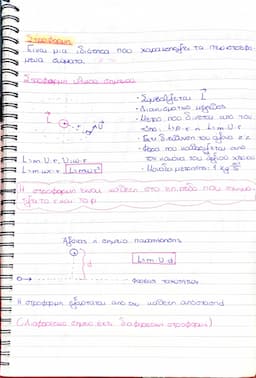 Στροφορμή
Είναι μια ιδιότητα που χαρακτηρίζει τα περιστρεφό-
μενα σώματα.
Στροφορμή υλικού σημείου
• Συμβολίζεται L
• Διανυσματικό μέγεθος
• Μέτρο που δίνεται από τον
τύπο: L=p·r ή L=m·υ·r
• Έχει διεύθυνση του άξονα
• Φορά που καθορίζεται από
τον κανόνα του δεξιού χεριού
• Μονάδα μέτρησης: 1 kg
L
r
υ
L=m·υ·r, υ=ω·r
L=m·ω·r·r L=m·ω·r²
Η στροφορμή είναι κάθετη στο επίπεδο που
Άξονας ή σημείο περιστροφής
d
L=m·υ·d
Φορέας ταχύτητας
Η στροφορμή εξαρτάται από την κάθετη απόσταση d
(Διαφορετικό σημείο έχει διαφορετική στροφορμή)